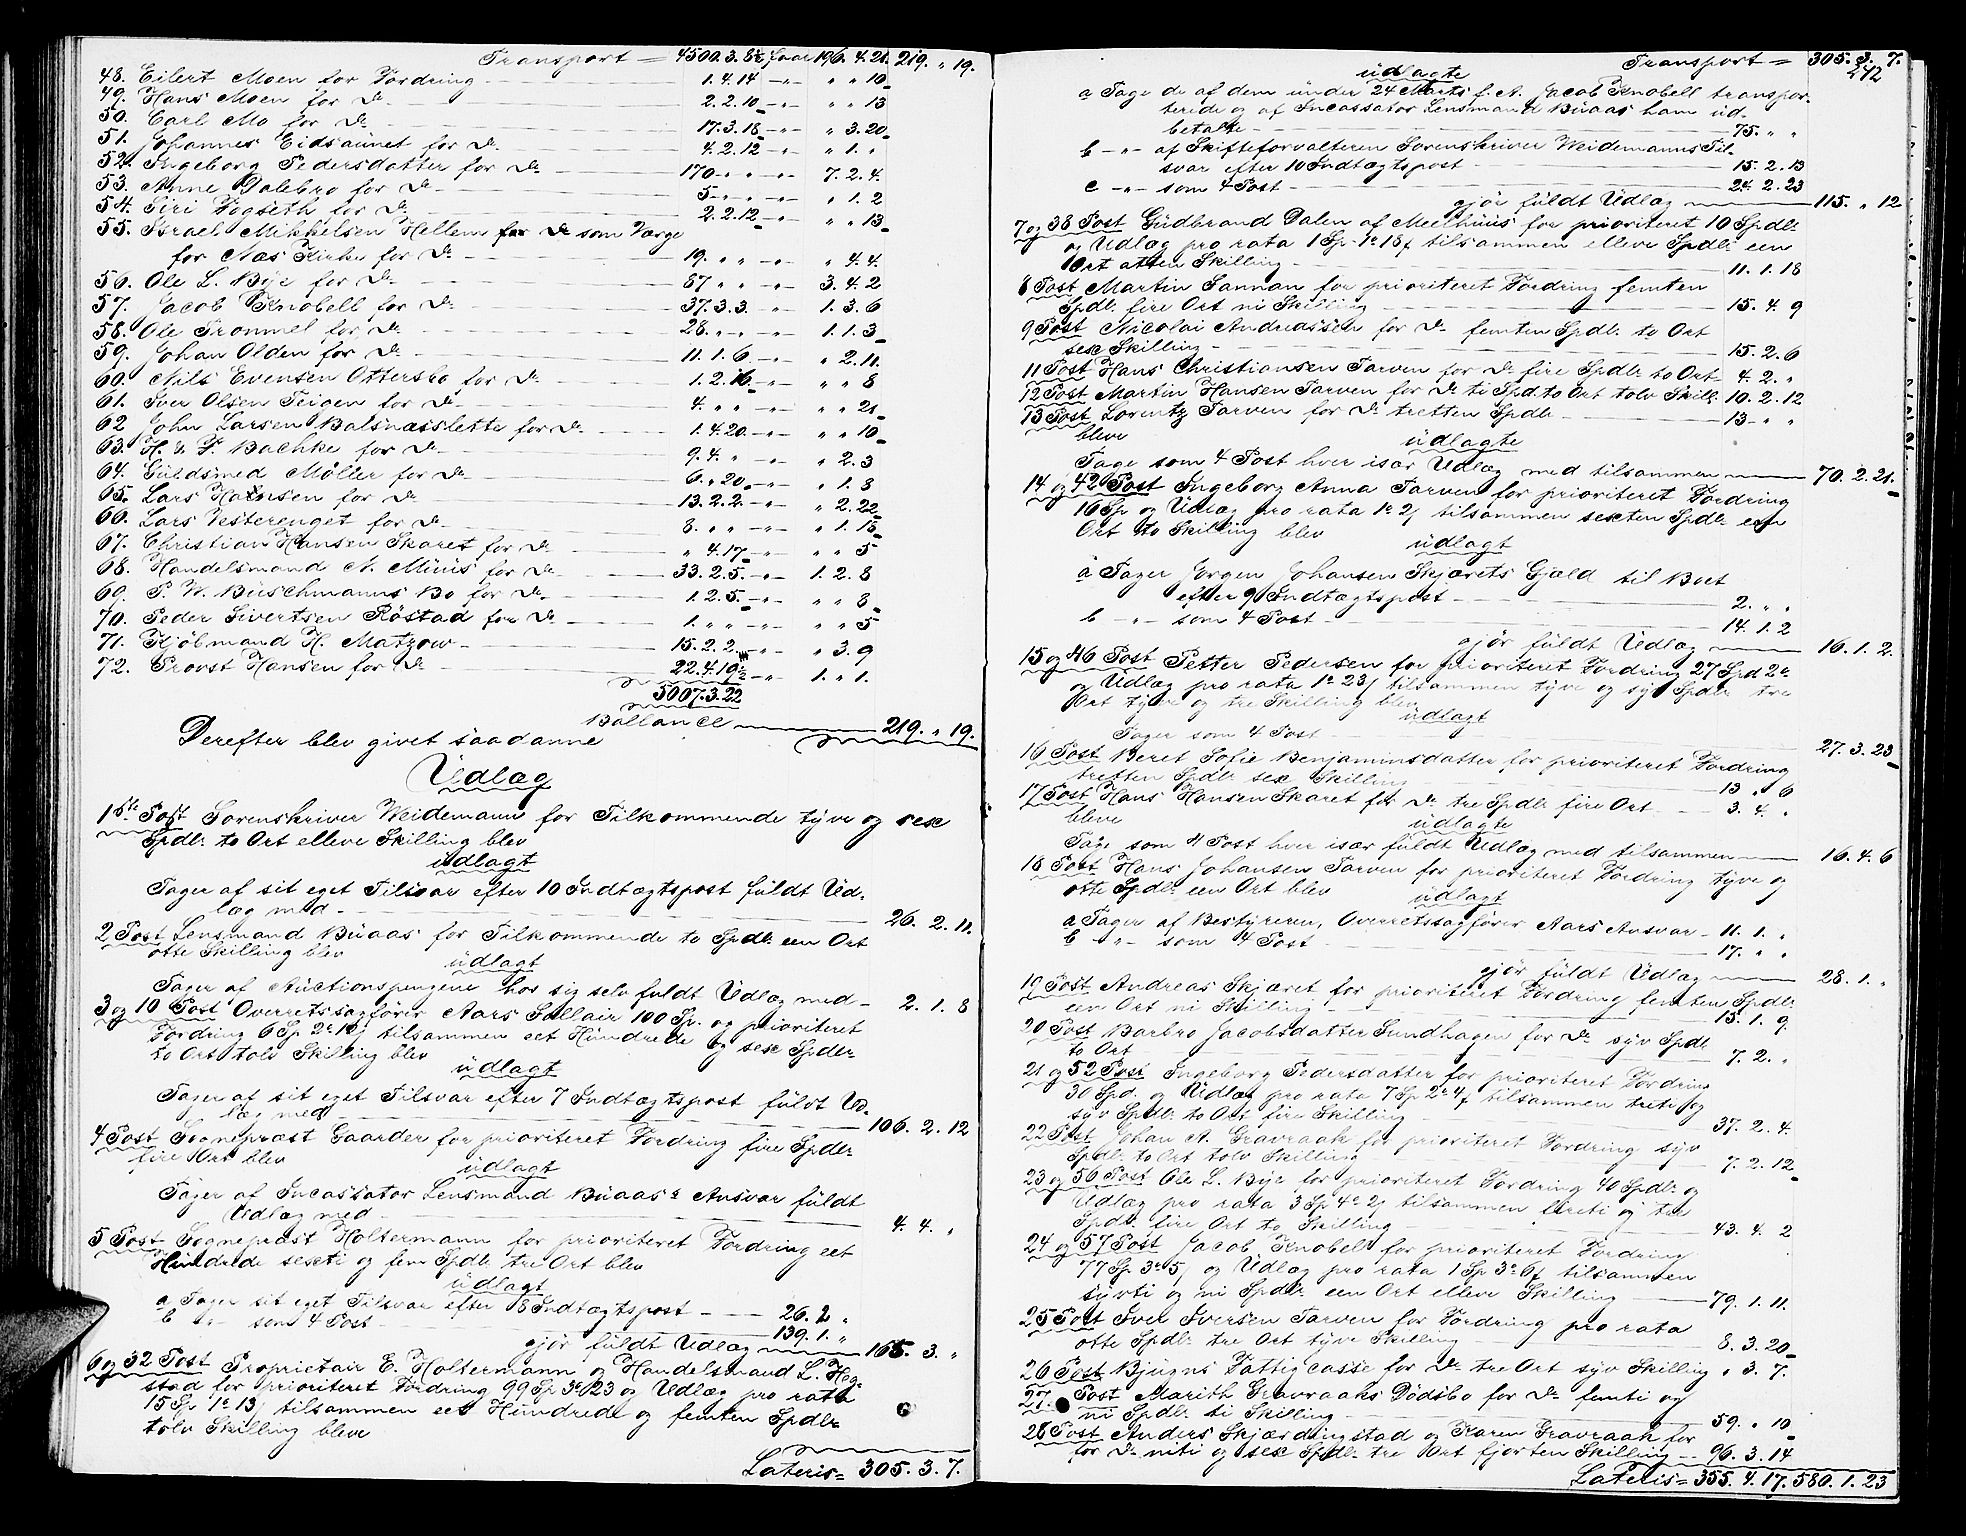 Transport = 4500.3.8½ faar 196.4.21. 219. " 19.
48. Eilert Moen for Fordring — 1.4.14 -"- " " 10
49. Hans Moen for Do — 2.2.10 -"- " " 13
50. Carl Mo for Do — 17.3.18 -"- " 3.20
51. Johannes Eidsaunet for Do — 4.2.12 -"- " 1. "
52. Ingeborg Pedersdatter for Do — 170 " " -"- 7.2.4.
53. Anne Dalebro for Do — 5 " " -"- " 1.2
54. Siri Fogseth for Do — 2.2.12 -"- " " 13
55. Israel Mikkelsen Hellem for Do som Værge
for Næs Kirke for Do — 19. " " -"- " 4.4.
56. Ole L. Bye for Do — 87 " " -"- 3.4.2
57. Jacob Knobell for Do — 37.3.3. -"- 1.3.6
58. Ole Trommel for Do — 28. " " -"- 1.1.3
59. Johan Olden for Do — 11.1.6 -"- " 2.11.
60. Nils Evensen Ottersbo for Do — 1.2.16 -"- " " 8
61. Iver Olsen Teigen for Do — 4. " " -"- " " 21
62 John Larsen Balsnæsslette for Do — 1.4.20 -"- " " 10
63. H. & F. Bachke for Do — 9.4. " -"- " 2.3
64. Guldsmed Møller for Do — 6. " 20 -"- " 1.8
65. Lars Halvorsen for Do — 13.2.2. -"- " 2.22
66. Lars Vesterenget for Do — 8. " " -"- " 1.18
67. Christian Hansen Skaret for Do — " 4.17 -"- " " 5
68. Handelsmand N. Müüs for Do — 33.2.5. -"- 1.2.8
69. P. W. Büschmanns Bo for Do — 1.2.5. -"- " " 8
70. Peder Sivertsen Röstad for Do — 1. " " -"- " " 5
71. Kjöbmand H. Matzow — 15.2.2. -"- " 3.9
72. Provst Hansen for Do — 22.4.19½ -"- 1. " 1.
5007.3.22
Ballance — 219. " 19.
Derefter blev givet saadanne
Udlæg
1ste Post Sorenskriver Weidemann for Tilkommende tyve og sex
Spdlr to Ort elleve Skilling blev
udlagt
Tager af sit eget Tilsvar efter 10 Indtægtspost fuldt Ud-
læg med — 26.2.11.
2 Post Lensmand Büaas for Tilkommende to Spdlr een Ort
otte Skilling blev
udlagt
Tager af Auctionspengene hos sig selv fuldt Udlæg med — 2.1.8
3 og 10 Post Overretssagförer Aars Sallair 100 Sp. og prioriteret
Fordring 6 Sp 2o 12ʃ tilsammen eet Hundrede og sex Spdlr
to Ort tolv Skilling blev
udlagt
Tager af sit eget Tilsvar efter 7 Indtægtspost fuldt Ud-
læg med — 106.2.12
4 Post Sognepræst Gaarder for prioriteret Fordring fire Spdlr
fire Ort blev
udlagt
Tager af Incassator Lensmand Büaas's Ansvar fuldt
Udlæg med — 4.4. "
5 Post Sognepræst Holtermann for prioriteret Fordring eet
Hundrede sexti og fem Spdlr tre Ort blev
udlagt
a Tager sit eget Tilsvar efter 8 Indtægtspost — 26.2 "
b -"- som 4 Post — 139.1. "
gjör fuldt Udlæg — 165.3. "
6 og 32 Post Proprietair E. Holtermann og Handelsmand L. Heg-
stad for prioriteret Fordring 99 Sp 3o 23 og Udlæg pro rata
15 Sp 1o 13ʃ tilsammen eet Hundrede og femten Spdlr
tolv Skilling bleve
Lateris = 305.3.7.
Transport = 305.3.7.
242
udlagte
a Tage de af dem under 24 Marts f. A. Jacob Knobell transpor-
terede og af Incassator Lensmand Büaas ham ud-
betalte — 75. " "
b -"- af Skifteforvalteren Sorenskriver Weidemanns Til-
svar efter 10 Indtægtspost — 15.2.13
c -"- som 4 Post — 24.2.23
gjör fuldt Udlæg — 115. " 12
7 og 38 Post Gudbrand Dalen af Meelhuus for prioriteret 10 Spdlr
og Udlæg pro rata 1 Sp 1o 18ʃ tilsammen elleve Spdlr een
Ort atten Skilling — 11.1.18
8 Post Martin Sannan for prioriteret Fordring femten
Spdlr fire Ort ni Skilling — 15.4.9
9 Post Nicolai Andreassen for Do femten Spdlr to Ort
sex Skilling — 15.2.6
11 Post Hans Christiansen Tarven for Do fire Spdlr to Ort — 4.2. "
12 Post Martin Hansen Tarven for Do ti Spd. to Ort tolv Skill. 10.2.12
13 Post Lorentz Tarven for Do tretten Spdlr — 13 " "
bleve
udlagte
Tage som 4 Post hver især Udlæg med tilsammen — 70.2.21.
14 og 42 Post Ingeborg Anna Tarven for prioriteret Fordring
16 Sp og Udlæg pro rata 1o 2ʃ tilsammen sexten Spdlr een
Ort to Skilling blev
udlagt
a Tager Jörgen Johansen Skjærets Gjæld til Boet
efter 9 Indtægtspost — 2. " "
b -"- som 4 Post — 14.1.2
gjör fuldt Udlæg — 16.1.2.
15 og 46 Post Petter Pedersen for prioriteret Fordring 27 Spd 2o
og Udlæg pro rata 1o 23ʃ tilsammen tyve og syv Spdlr tre
Ort tyve og tre Skilling blev
udlagt
Tager som 4 Post — 27.3.23
16 Post Beret Sofie Benjaminsdatter for prioriteret Fordring
tretten Spdlr sex Skilling — 13 " 6
17 Post Hans Hansen Skaret for Do tre Spdlr fire Ort — 3.4. "
bleve
udlagte
Tage som 4 Post hver især fuldt Udlæg med tilsammen — 16.4.6
18 Post Hans Johansen Tarven for prioriteret Fordring tyve og
otte Spdlr een Ort blev
udlagt
a Tager af Bestyreren, Overretssagförer Aars Ansvar — 11.1. "
b -"- som 4 Post — 17. " "
gjör fuldt Udlæg — 28.1. "
19 Post Andreas Skjæret for prioriteret Fordring femten Spdlr
een Ort ni Skilling — 15.1.9.
20 Post Barbro Jacobsdatter Sundhagen for Do syv Spdlr
to Ort — 7.2. "
21 og 52 Post Ingeborg Pedersdatter for prioriteret Fordring
30 Spd. og Udlæg pro rata 7 Sp 2o 4ʃ tilsammen treti og
syv Spdlr to Ort fire Skilling — 37.2.4.
22 Post Johan A. Gravraak for prioriteret Fordring syv
Spdlr to Ort tolv Skilling — 7.2.12
23 og 56 Post Ole L. Bye for prioriteret Fordring 40 Spdlr og
Udlæg pro rata 3 Sp 4o 2ʃ tilsammen firti og tre
Spdlr fire Ort to Skilling — 43.4.2
24 og 57 Post Jacob Knobell for prioriteret Fordring
77 Sp 3o 5ʃ og Udlæg pro rata 1 Sp 3o 6ʃ tilsammen
sytti og ni Spdlr een Ort elleve Skilling — 79.1.11.
25 Post Iver Iversen Tarven for Fordring pro rata
otte Spdlr tre Ort tyve Skilling — 8.3.20
26 Post Bjugns Fattigcasse for Do tre Ort syv Skilling " 3.7.
27. Post Marith Gravraaks Dödsbo for Do femti og
ni Spdlr ti Skilling — 59. " 10
28 Post Anders Skjærdingstad og Karen Gravraak for
for Do niti og sex Spdlr tre Ort fjorten Skilling — 96.3.14
Lateris = 355.4.17. 580.1.23